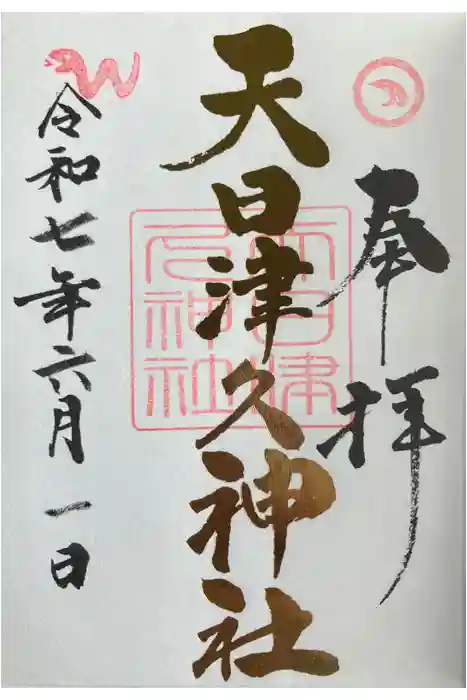 奉拝
天日津久神社
天日津久神社
令和七年六月一日